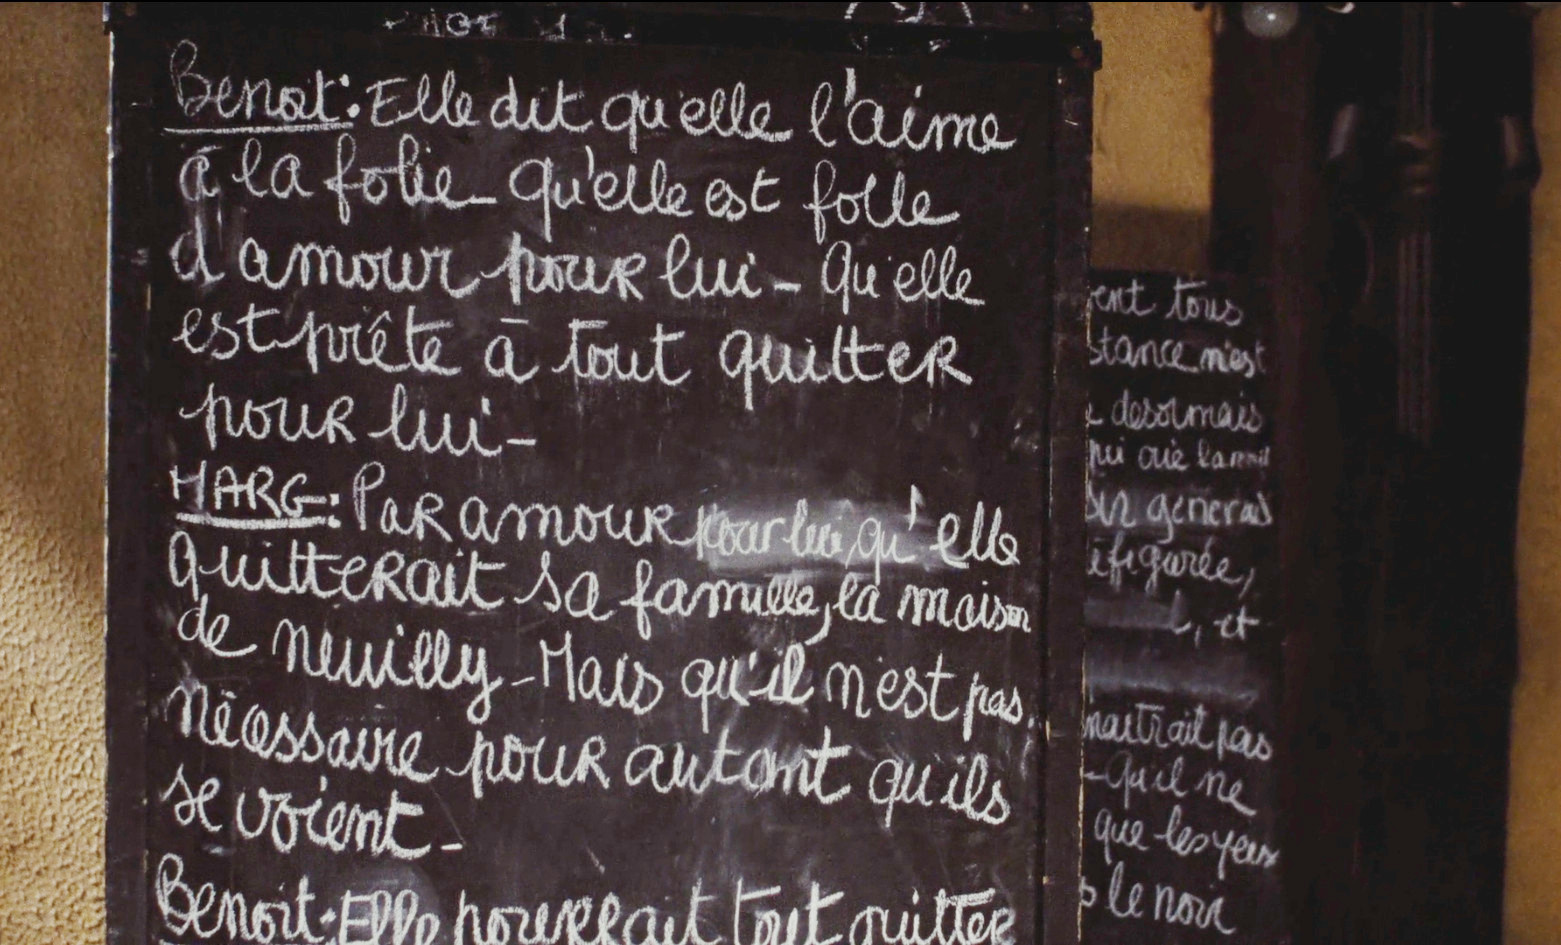 Benoit: Elle dit qu'elle l'aime
à la folie - Qu'elle est folle
d'amour pour lui - Qu'elle
est prête à tout quitter
pour lui -
MARG: Par amour pour lui, qu'elle
quitterait sa famille, la maison
de Neuilly - Mais qu'il n'est pas
nécessaire pour autant qu'ils
se voient -
Benoit: Elle pourrait tout quitter
tous
stance n'est
desormais
general
figurée,
, et
naitrait pas
- Qu'il ne
que les yeux
le noir